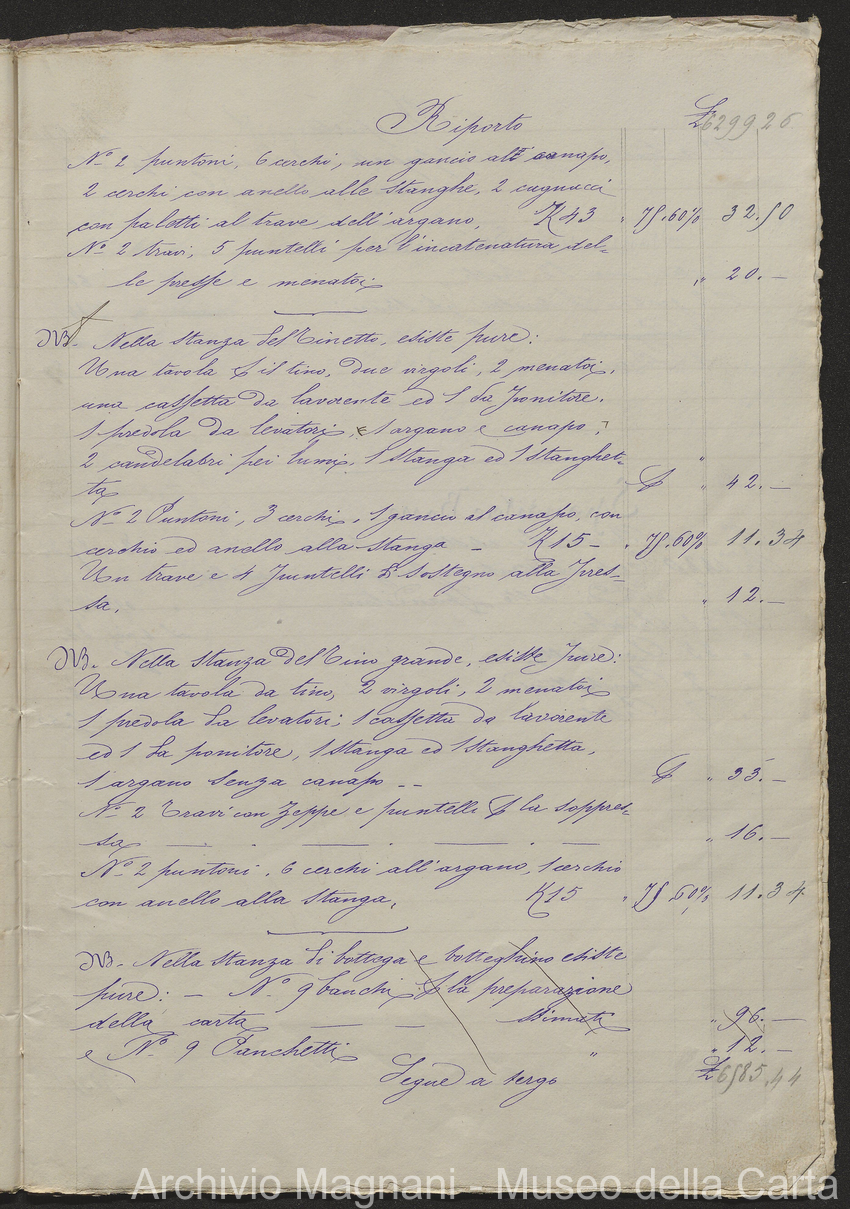 Riporto £ 6299.26
N.º 2 puntoni, 6 cerchi, un gancio al canapo,
2 cerchi con anello alle stanghe, 2 cugnacci
con paletti al trave dell'argano, K 43 " 75.60% 32.50
N.º 2 travi, 5 puntelli per l'incatenatura del=
le presse e menatoi " 20.—
NB. Nella stanza del Tinetto, esiste pure:
Una tavola p il tino, due virgoli, 2 menatoi,
una cassetta da lavorente ed 1 da ponitore.
1 predola da levatori, E 1 argano e canapo,
2 candelabri pei lumi, 1 stanga ed 1 stanghet=
ta £ " 42.—
N.º 2 Puntoni, 3 cerchi, 1 gancio al canapo, con
cerchio ed anello alla stanga — K 15 — " 75.60% 11.34
Un trave e 4 puntelli di sostegno alla pres=
sa. " 12.—
NB. Nella stanza del Tino grande, esiste pure:
Una tavola da tino, 2 virgoli, 2 menatoi
1 predola da levatori; 1 cassetta da lavorente
ed 1 da ponitore, 1 stanga ed 1 stanghetta,
1 argano senza canapo -- £ " 33.—
N.º 2 Travi con zeppe e puntelli p la soppres=
sa — . — . — . — " 16.—
N.º 2 puntoni, 6 cerchi all'argano, 1 cerchio
con anello alla stanga, K 15 " 75.60% 11.34
NB. Nella stanza di bottega e botteghino esiste
pure: — N.º 9 banchi p la preparazione
della carta — — stimati " 96.—
e N.º 9 Panchetti " " 12.—
Segue a tergo £ 6585.44
Archivio Magnani - Museo della Carta